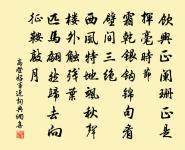 飲興正闌珊正是
揮毫時節
霜乾銀鉤錦句看
壁間三絕
西風特地颯秋聲
樓外觸殘葉
匹馬翩然歸去向
征鞍敲月
高登好事近詞